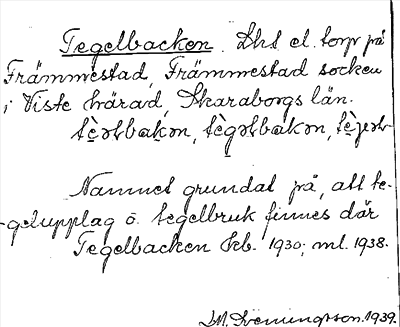 Tegelbacken. Lht el. torp på
Främmestad, Främmestad socken
i Viste härad, Skaraborgs län.
Namnet grundat på, att te-
-gelupplag o. tegelbruk finnes där
Tegelbacken Ekb. 1930; ml. 1938.
M. Svenningsson. 1939.